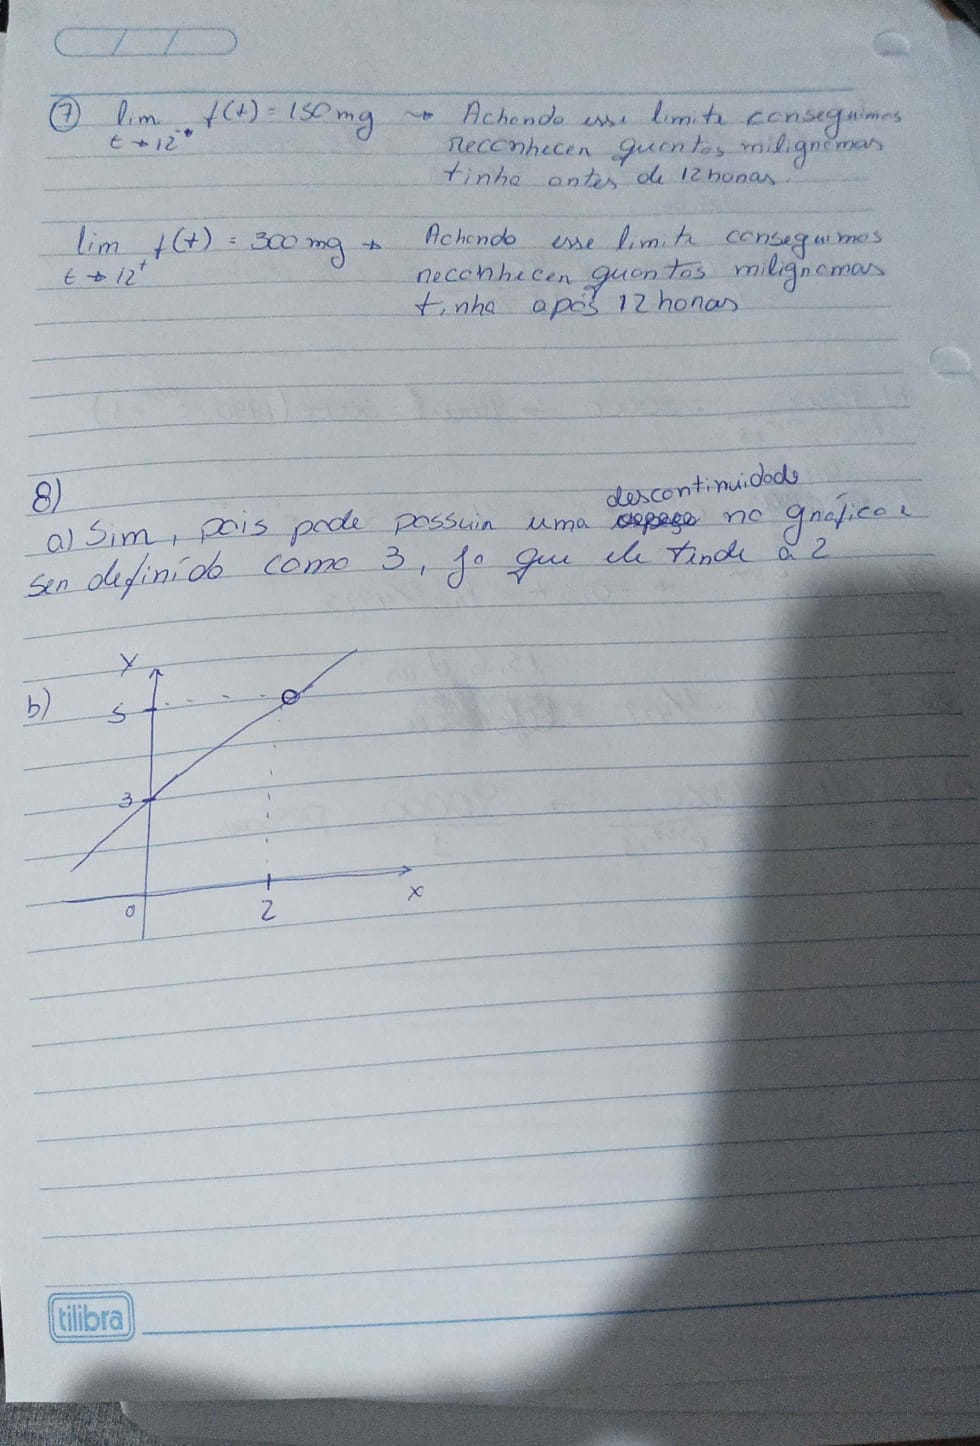 7 lim f(t) = 150 mg → Achando esse limite conseguimos
t → 12⁻ reconhecer quantos miligramas
tinha antes de 12 horas.
lim f(t) = 300 mg → Achando esse limite conseguimos
t → 12⁺ reconhecer quantos miligramas
tinha após 12 horas
8)
descontinuidade
a) Sim, pois pode possuir uma no gráfico e
ser definido como 3, já que ele tende a 2
b)
y
5
3
0
2
x
tilibra